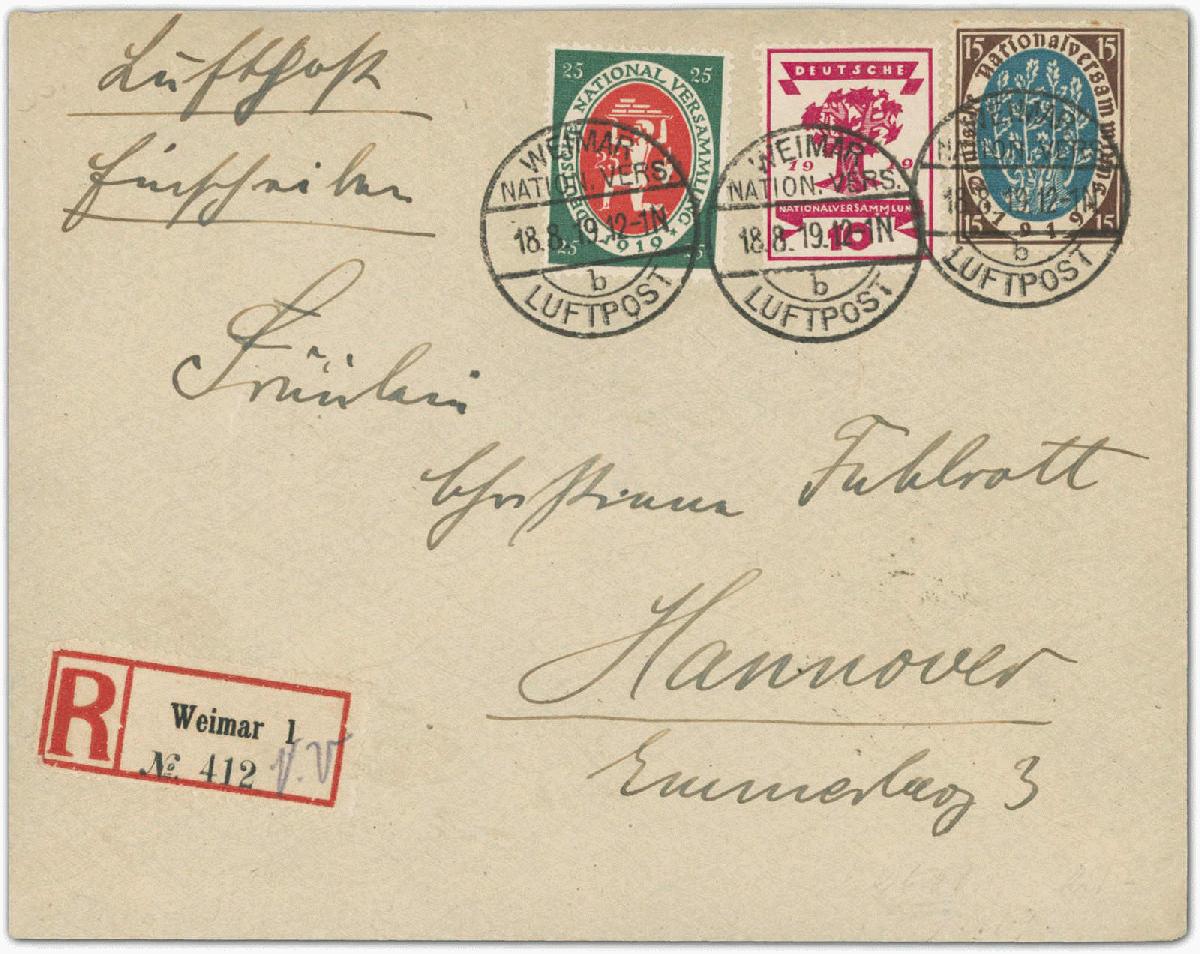 Luftpost
Einschreiben
25 25
NATIONALVERSAMMLUNG
DEUTSCHE
25
25 25
1919
DEUTSCHE
19 19
NATIONALVERSAMMLUNG
10
15 15
Deutsche Nationalversammlung
15 15
1919
WEIMAR
NATION. VERS.
18.8.19.12-1N
b
LUFTPOST
WEIMAR
NATION. VERS.
18.8.19.12-1N
b
LUFTPOST
WEIMAR
NATION. VERS.
18.8.19.12-1N
b
LUFTPOST
Fräulein
Christiane Fuhlrott
Hannover
Emmerberg 3
R
Weimar 1
№ 412